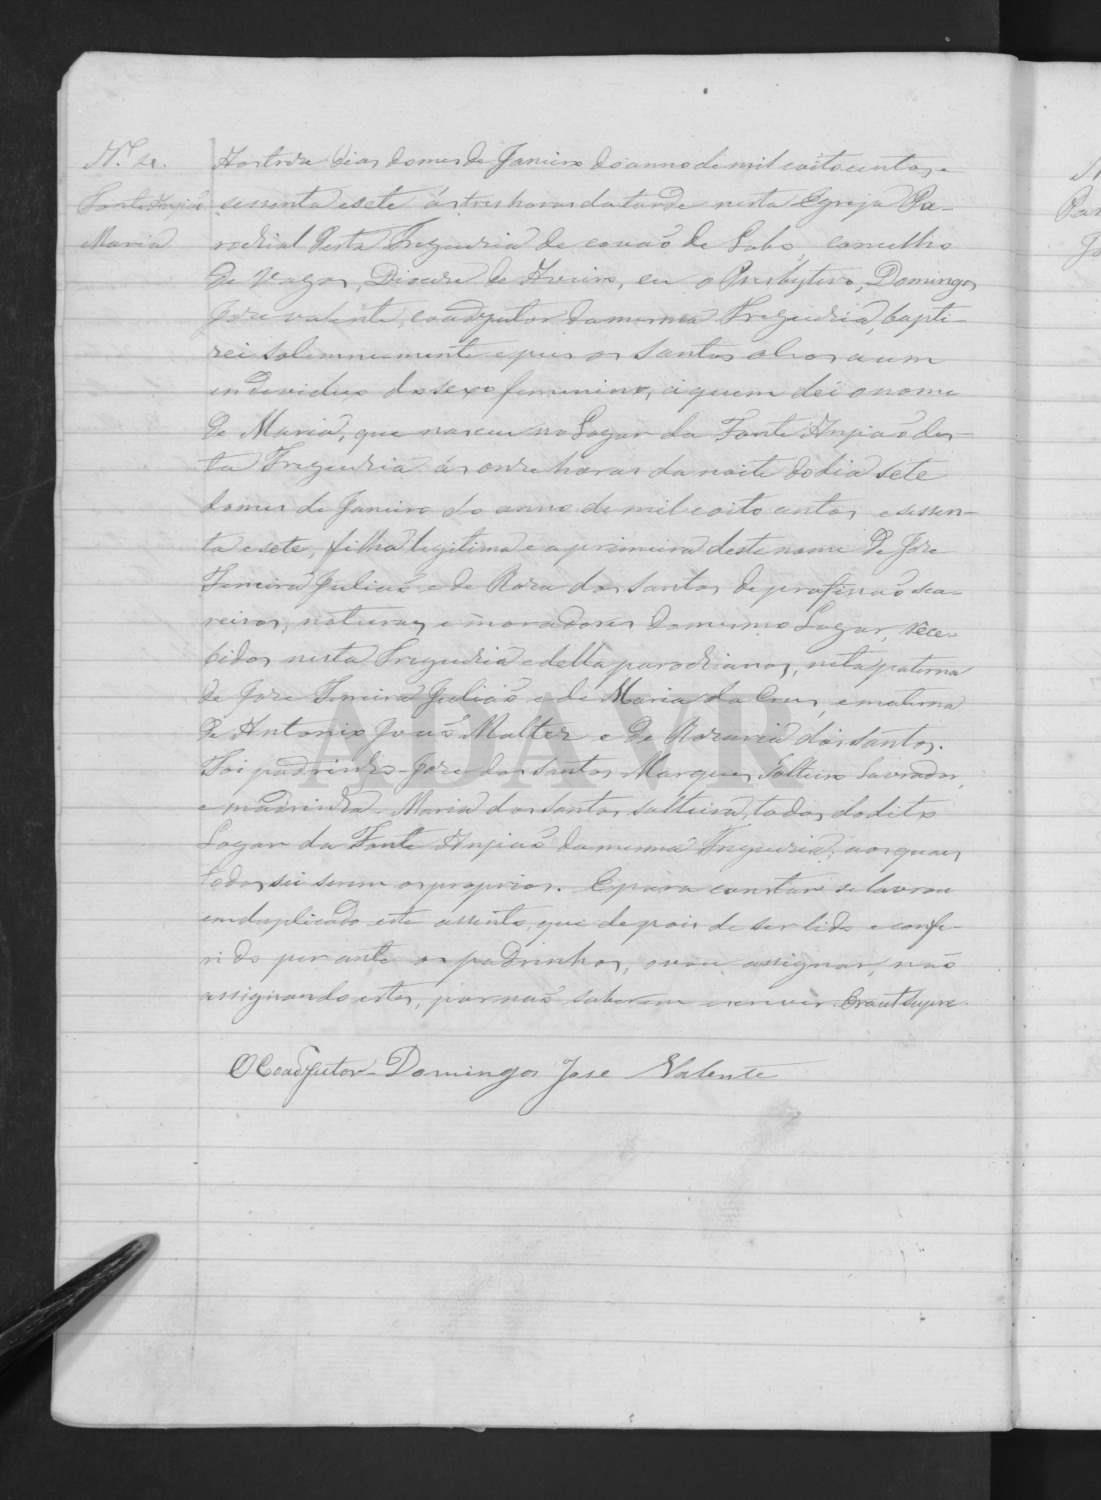 N.º 4.
Fonte Anjião
Maria
Aos treze dias do mes de Janeiro do anno de mil e oito centos e
sessenta e sete ás tres horas da tarde nesta Egreja Pa-
rochial desta Freguezia de covão de Lobo, concelho
de Vagos, Diocese de Aveiro, eu o Presbytero, Domingos
Jose valente, coadjutor da mesma Freguezia, bapti-
sei solemnemente e pus os santos oleos a um
individuo do sexo femenino, a quem dei o nome
de Maria, que nasceu no Logar da Fonte Anjião des-
ta Freguezia ás onze horas da noite do dia sete
do mes de Janeiro do anno de mil e oito centos e sessen-
ta e sete, filha legitima e a primeira deste nome de Jose
Julião e de Roza dos santos de profissão sea-
reiros, naturaes e moradores do mesmo Logar, rece-
bidos nesta Freguezia e della parochianos, neta paterna
de Jose Julião e de Maria da Cruz, e materna
de Antonio João Malter e de dos santos.
Foi padrinho Jose dos santos Marques, solteiro lavrador,
e madrinha Maria dos santos solteira, todos do dito
Logar da Fonte Anjião da mesma Freguezia, aos quaes
todos sei serem os proprios. E para constar se lavrou
em duplicado este assento, que depois de ser lido e confe-
rido perante os padrinhos, o vou assignar, não
assignando estes, por não saberem escrever. Era ut supra.
O Coadjutor Domingos Jose Valente
ADAVR